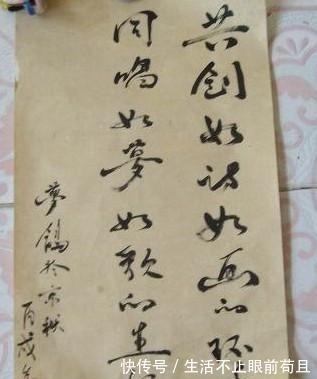 共创如诗如画的环
同唱如夢如歌的生
夢鴿於京秋
丙戌年
快传号 / 生活不止眼前苟且